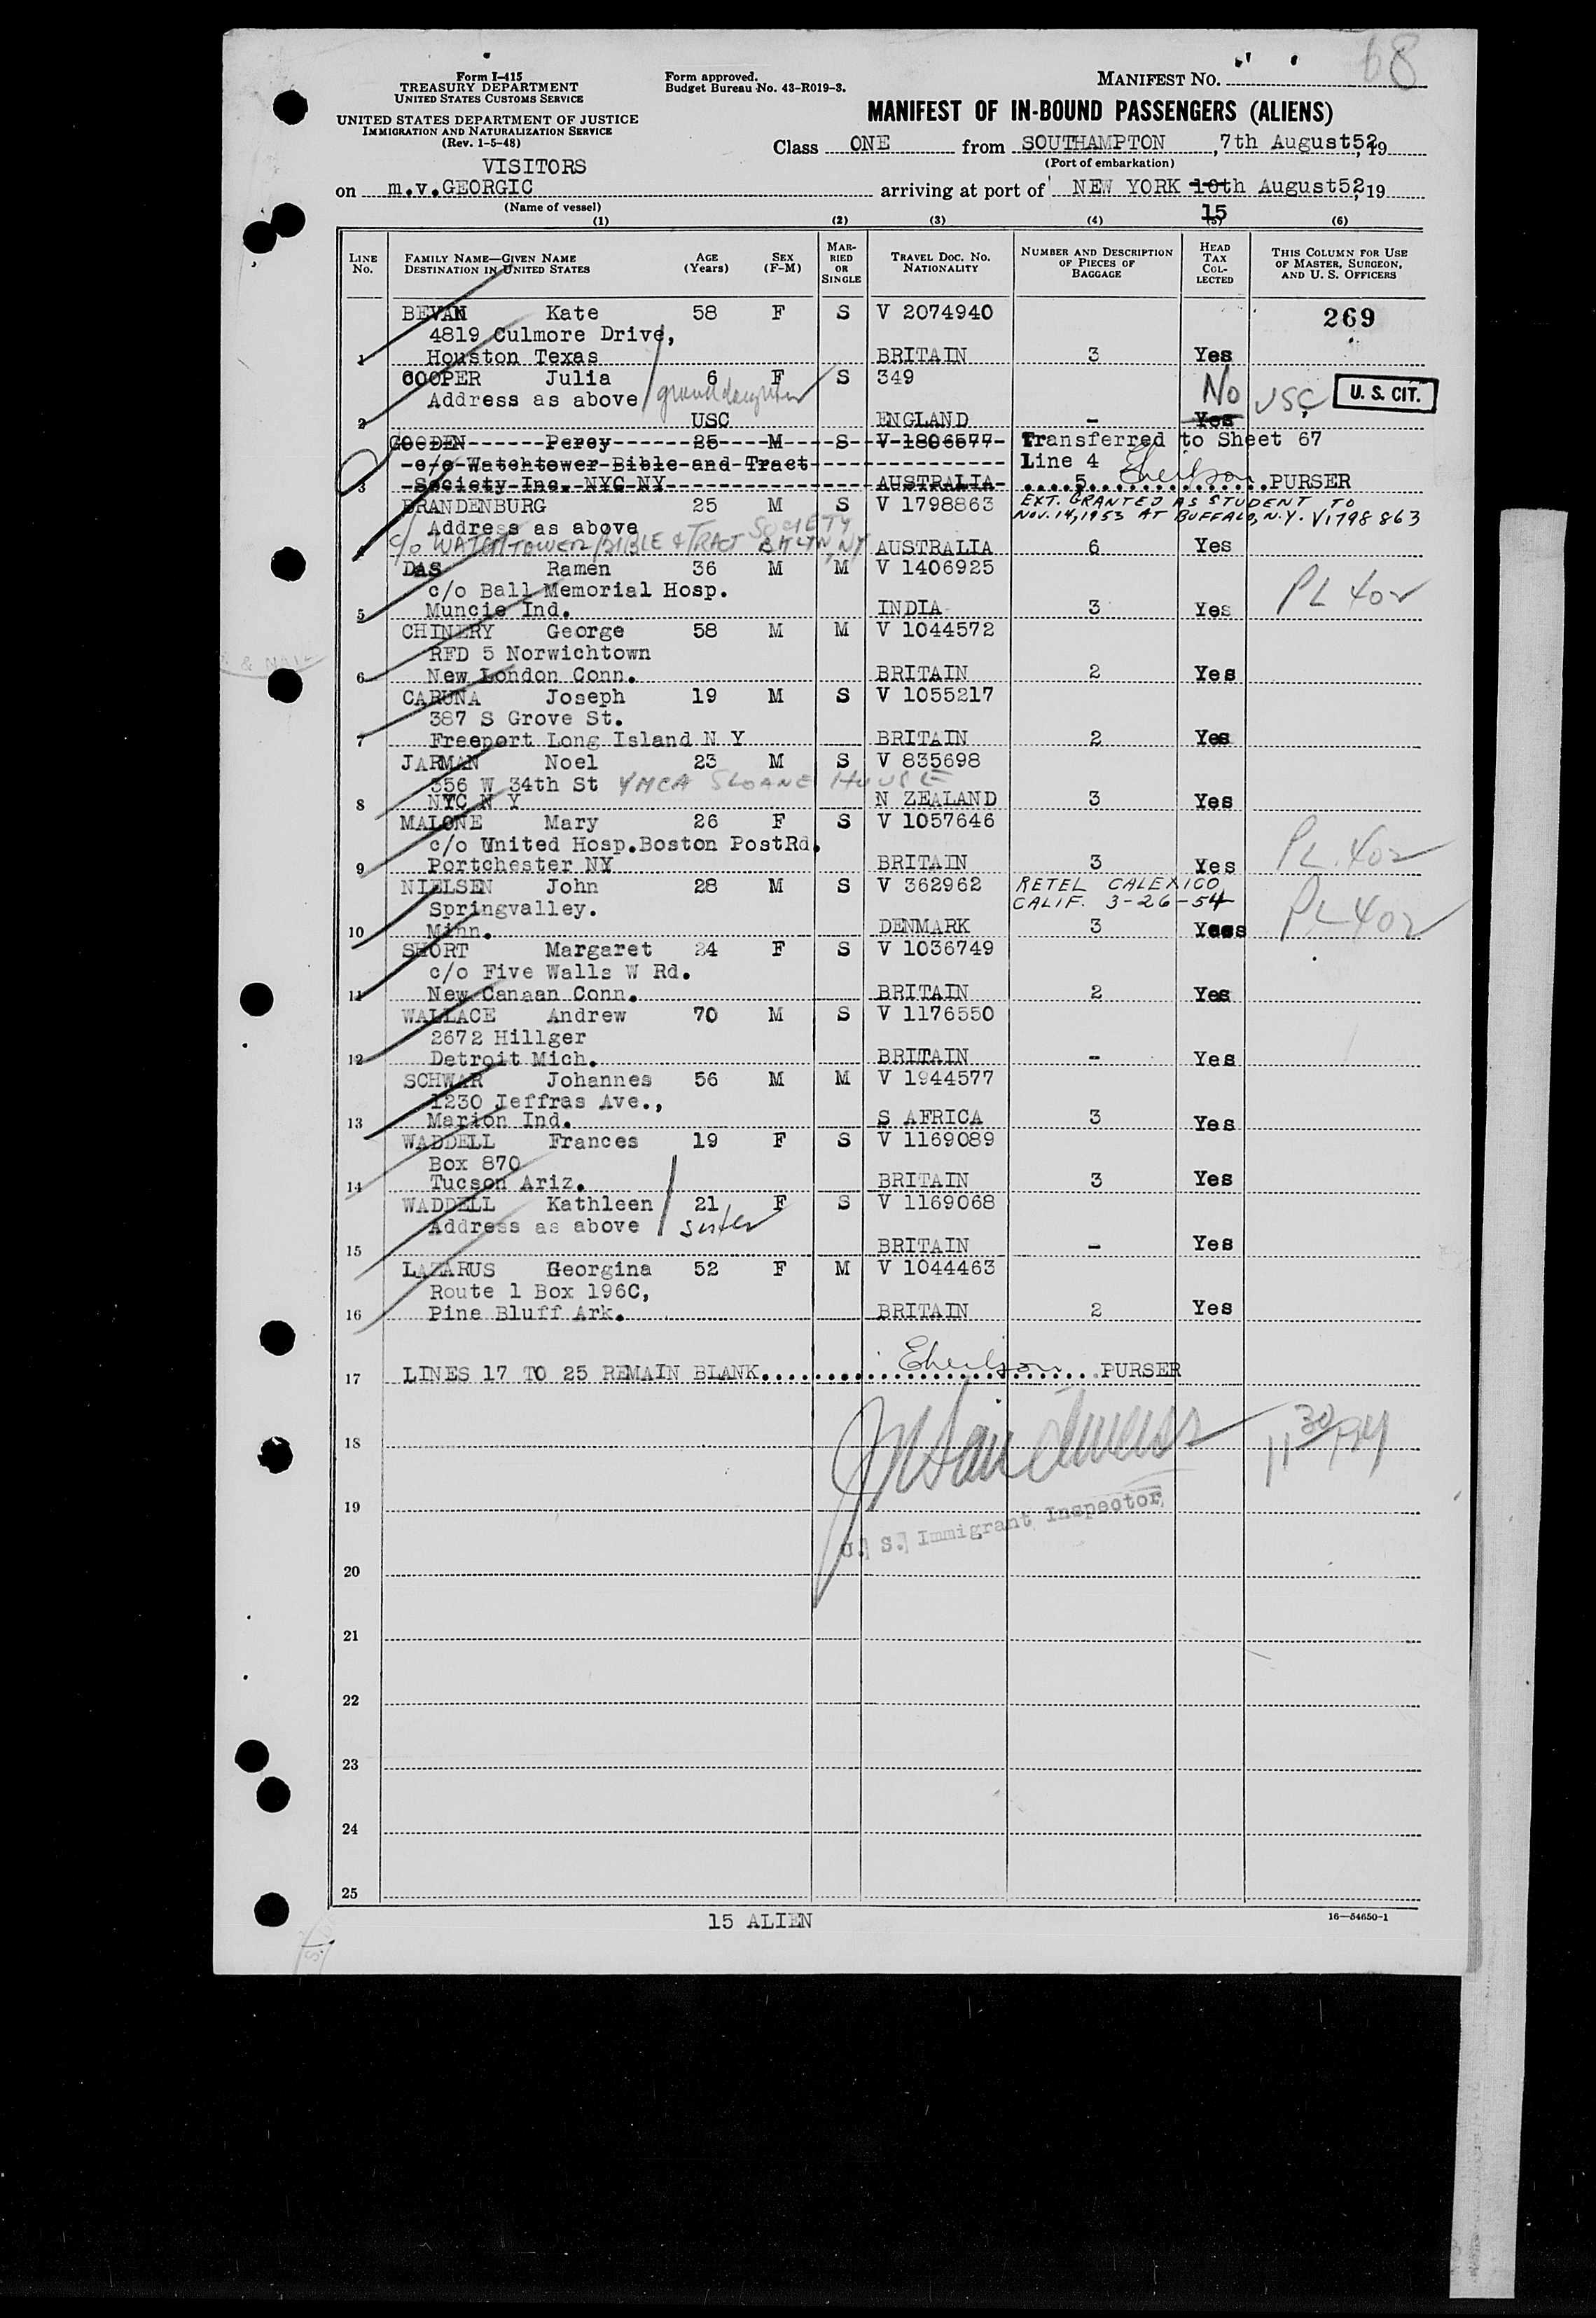 68
Form I-415
TREASURY DEPARTMENT
UNITED STATES CUSTOMS SERVICE
UNITED STATES DEPARTMENT OF JUSTICE
IMMIGRATION AND NATURALIZATION SERVICE
(Rev. 1-5-48)
Form approved.
Budget Bureau No. 43-R019-3.
MANIFEST NO.
MANIFEST OF IN-BOUND PASSENGERS (ALIENS)
Class ONE from SOUTHAMPTON, 7th August52, 19
(Port of embarkation)
VISITORS
on m.v.GEORGIC arriving at port of NEW YORK 10th August52, 19
15
(Name of vessel)
(1) (2) (3) (4) (5) (6)
LINE NO. FAMILY NAME—GIVEN NAME DESTINATION IN UNITED STATES AGE (Years) SEX (F-M) MARRIED OR SINGLE TRAVEL DOC. NO. NATIONALITY NUMBER AND DESCRIPTION OF PIECES OF BAGGAGE HEAD TAX COLLECTED THIS COLUMN FOR USE OF MASTER, SURGEON, AND U. S. OFFICERS
BEVAN Kate 58 F S V 2074940 269
4819 Culmore Drive,
1 Houston Texas BRITAIN 3 Yes
COOPER Julia 6 F S 349 No USC U. S. CIT.
Address as above granddaughter
2 USC ENGLAND - Yes
GOODEN Percy 25 M S V 1806577 Transferred to Sheet 67
c/o Watchtower Bible and Tract Line 4
3 Society Inc. NYC NY AUSTRALIA 5 PURSER
BRANDENBURG 25 M S V 1798863 EXT. GRANTED AS STUDENT TO
Address as above NOV. 14, 1953 AT BUFFALO, N.Y. V1798 863
c/o WATCHTOWER BIBLE & TRACT SOCIETY BKLYN, NY
4 AUSTRALIA 6 Yes
DAS Ramen 36 M M V 1406925 PL 402
c/o Ball Memorial Hosp.
5 Muncie Ind. INDIA 3 Yes
CHINERY George 58 M M V 1044572
RFD 5 Norwichtown
6 New London Conn. BRITAIN 2 Yes
CARUNA Joseph 19 M S V 1055217
387 S Grove St.
7 Freeport Long Island N Y BRITAIN 2 Yes
JARMAN Noel 23 M S V 835698
356 W 34th St YMCA SLOANE HOUSE
8 NYC N Y N ZEALAND 3 Yes
MALONE Mary 26 F S V 1057646
c/o United Hosp.Boston PostRd. PL 402
9 Portchester NY BRITAIN 3 Yes
NIELSEN John 28 M S V 362962 RETEL CALEXICO
Springvalley. CALIF. 3-26-54 PL 402
10 Minn. DENMARK 3 Yes
SHORT Margaret 24 F S V 1036749
c/o Five Walls W Rd.
11 New Canaan Conn. BRITAIN 2 Yes
WALLACE Andrew 70 M S V 1176550
2672 Hillger
12 Detroit Mich. BRITAIN - Yes
SCHWAR Johannes 56 M M V 1944577
1230 Jeffras Ave.,
13 Marion Ind. S AFRICA 3 Yes
WADDELL Frances 19 F S V 1169089
Box 870
14 Tucson Ariz. BRITAIN 3 Yes
WADDELL Kathleen 21 F S V 1169068
Address as above sister
15 BRITAIN - Yes
LAZARUS Georgina 52 F M V 1044463
Route 1 Box 196C,
16 Pine Bluff Ark. BRITAIN 2 Yes
17 LINES 17 TO 25 REMAIN BLANK PURSER
18 11 30 PM
19
U. S. Immigrant Inspector
20
21
22
23
24
25
15 ALIEN
16—54650-1